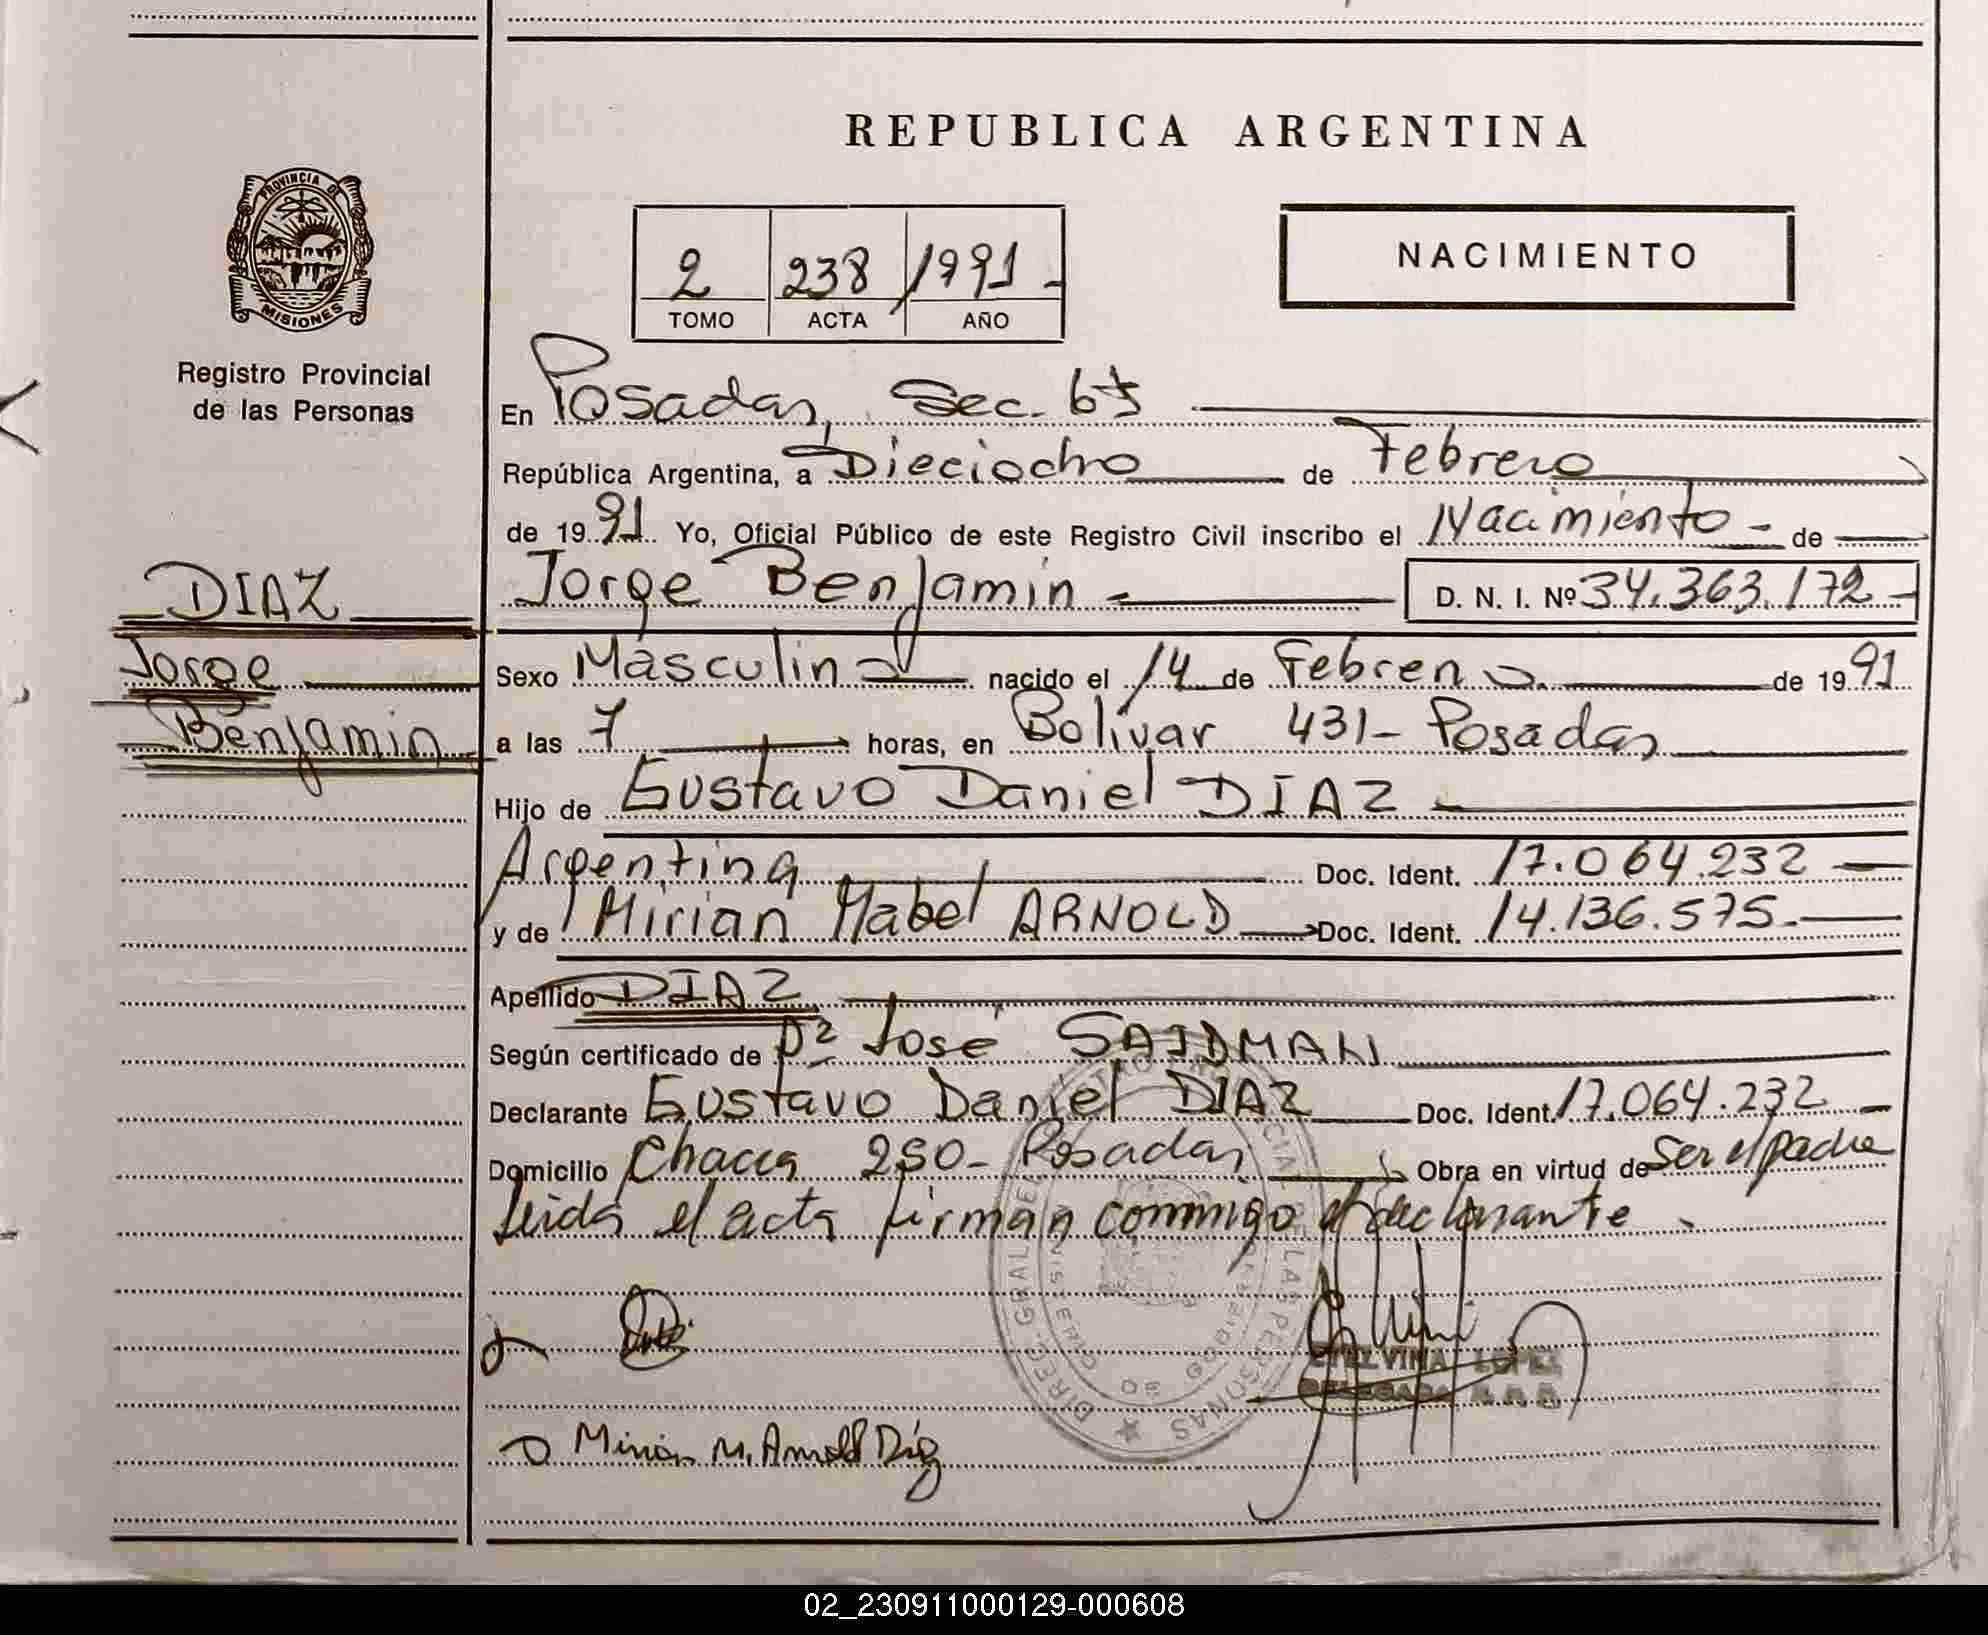 REPUBLICA ARGENTINA
PROVINCIA DE
MISIONES
Registro Provincial
de las Personas
2 238 1991
TOMO ACTA AÑO
NACIMIENTO
En Posadas, Sec. 6ta
República Argentina, a Dieciocho de Febrero
de 1991 Yo, Oficial Público de este Registro Civil inscribo el Nacimiento de
Jorge Benjamin D. N. I. Nº 34.363.172
DIAZ
Jorge
Benjamin
Sexo Masculino nacido el 14 de Febrero de 1991
a las 7 horas, en Bolívar 431 - Posadas
Hijo de Gustavo Daniel DIAZ
Argentina Doc. Ident. 17.064.232
y de Mirian Mabel ARNOLD Doc. Ident. 14.136.575
Apellido DIAZ
Según certificado de José SAIDMAN
Declarante Gustavo Daniel DIAZ Doc. Ident. 17.064.232
Domicilio Chacra 250 - Posadas Obra en virtud de Ser el padre
Leida el acta firman conmigo el declarante
ETELVINA LOPEZ
DELEGADA
Mirian M. Arnold Díaz
02_230911000129-000608